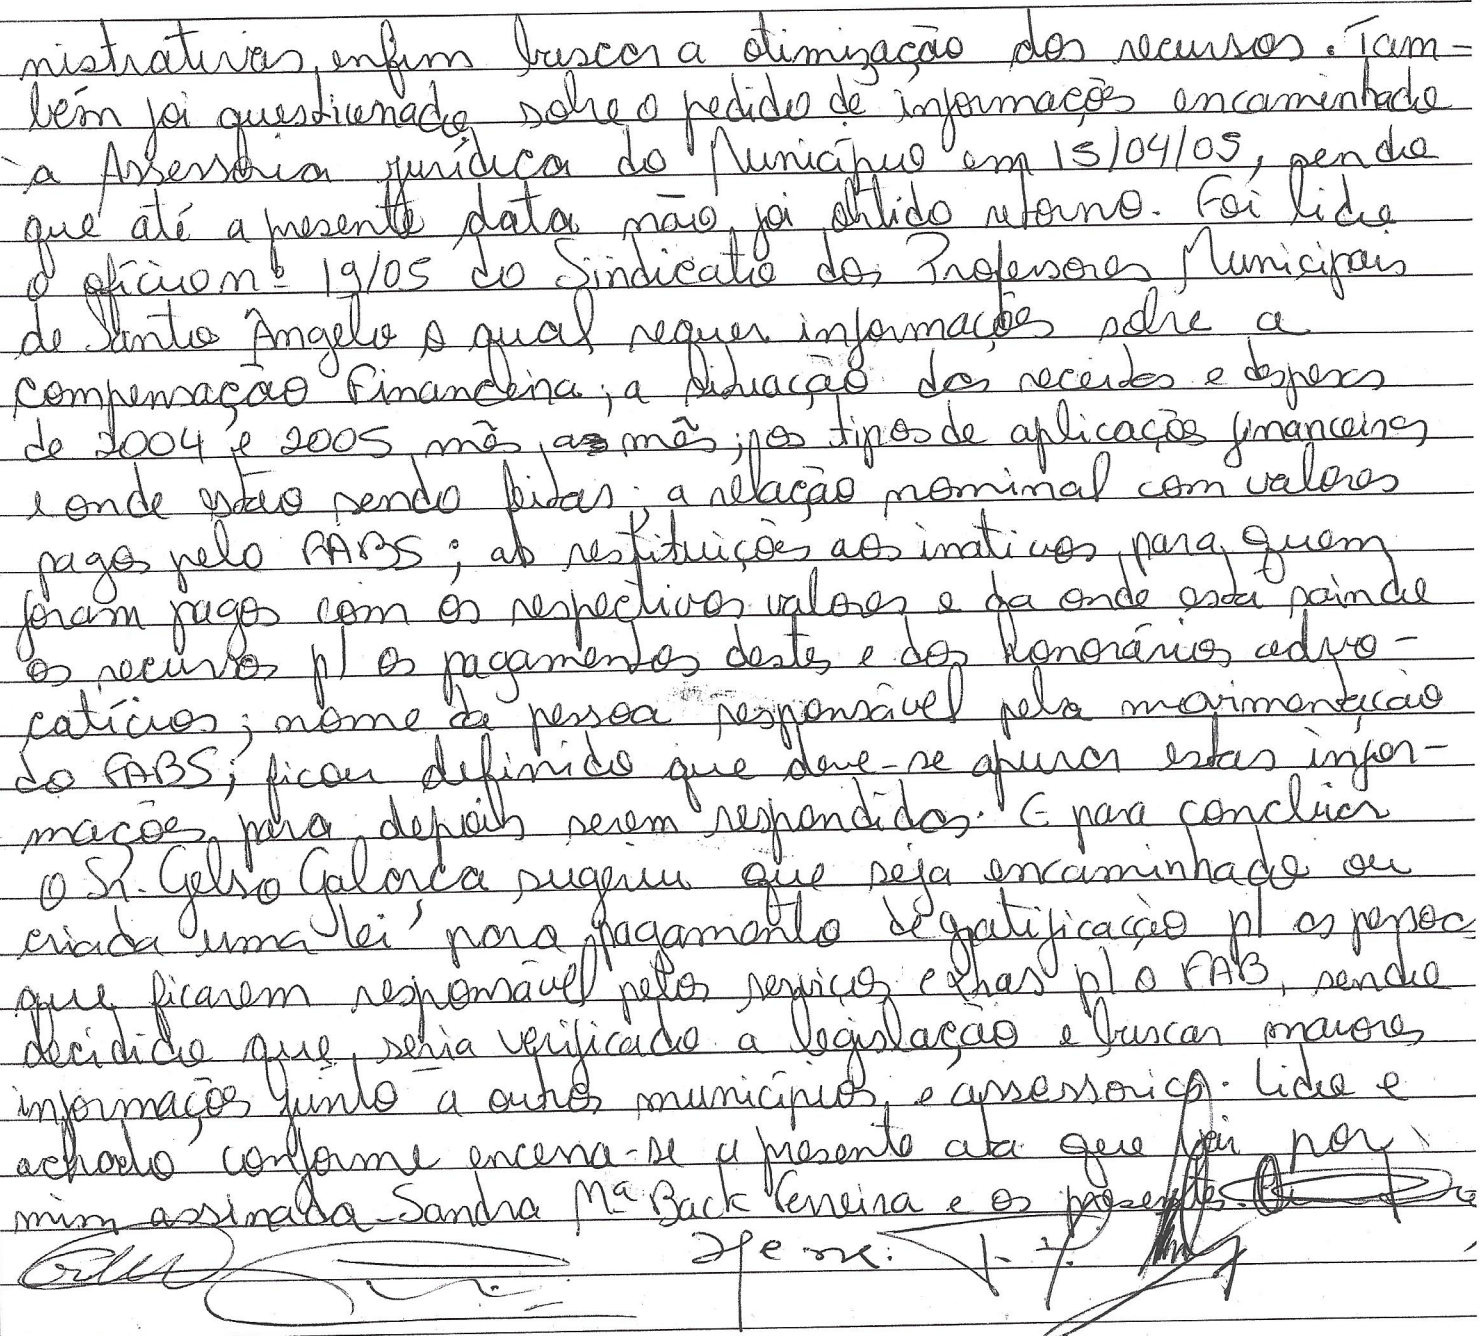 nistrativas, enfim buscar a otimização dos recursos. Tam-
bém foi questionado sobre o pedido de informações encaminhado
à Assessoria jurídica do Município em 15/04/05, sendo
que até a presente data não foi obtido retorno. Foi lido
o ofício nº 19/05 do Sindicato dos Professores Municipais
de Santo Ângelo o qual requer informações sobre a
compensação Financeira; a situação das receitas e despesas
de 2004 e 2005 mês a mês; os tipos de aplicações financeiras
e onde estão sendo feitas; a relação nominal com valores
pagos pelo FABS; as restituições aos inativos, para quem
foram pagos com os respectivos valores e da onde está saindo
os recursos p/ os pagamentos destes e dos honorários advo-
catícios; nome da pessoa responsável pela movimentação
do FABS; ficou definido que deve-se apurar estas infor-
mações para depois serem respondidos. E para concluir
o Sr. Gelso Galorça sugeriu que seja encaminhado ou
criada uma lei para pagamento de gratificação p/ as pessoa
que ficarem responsável pelos serviços extras p/ o FAB, sendo
decidido que seria verificado a legislação e buscar maiores
informações junto a outros municípios e assessorias. Lido e
achado conforme encerra-se a presente ata que vai por
mim assinada Sandra Mª Back Ferreira e os presentes.